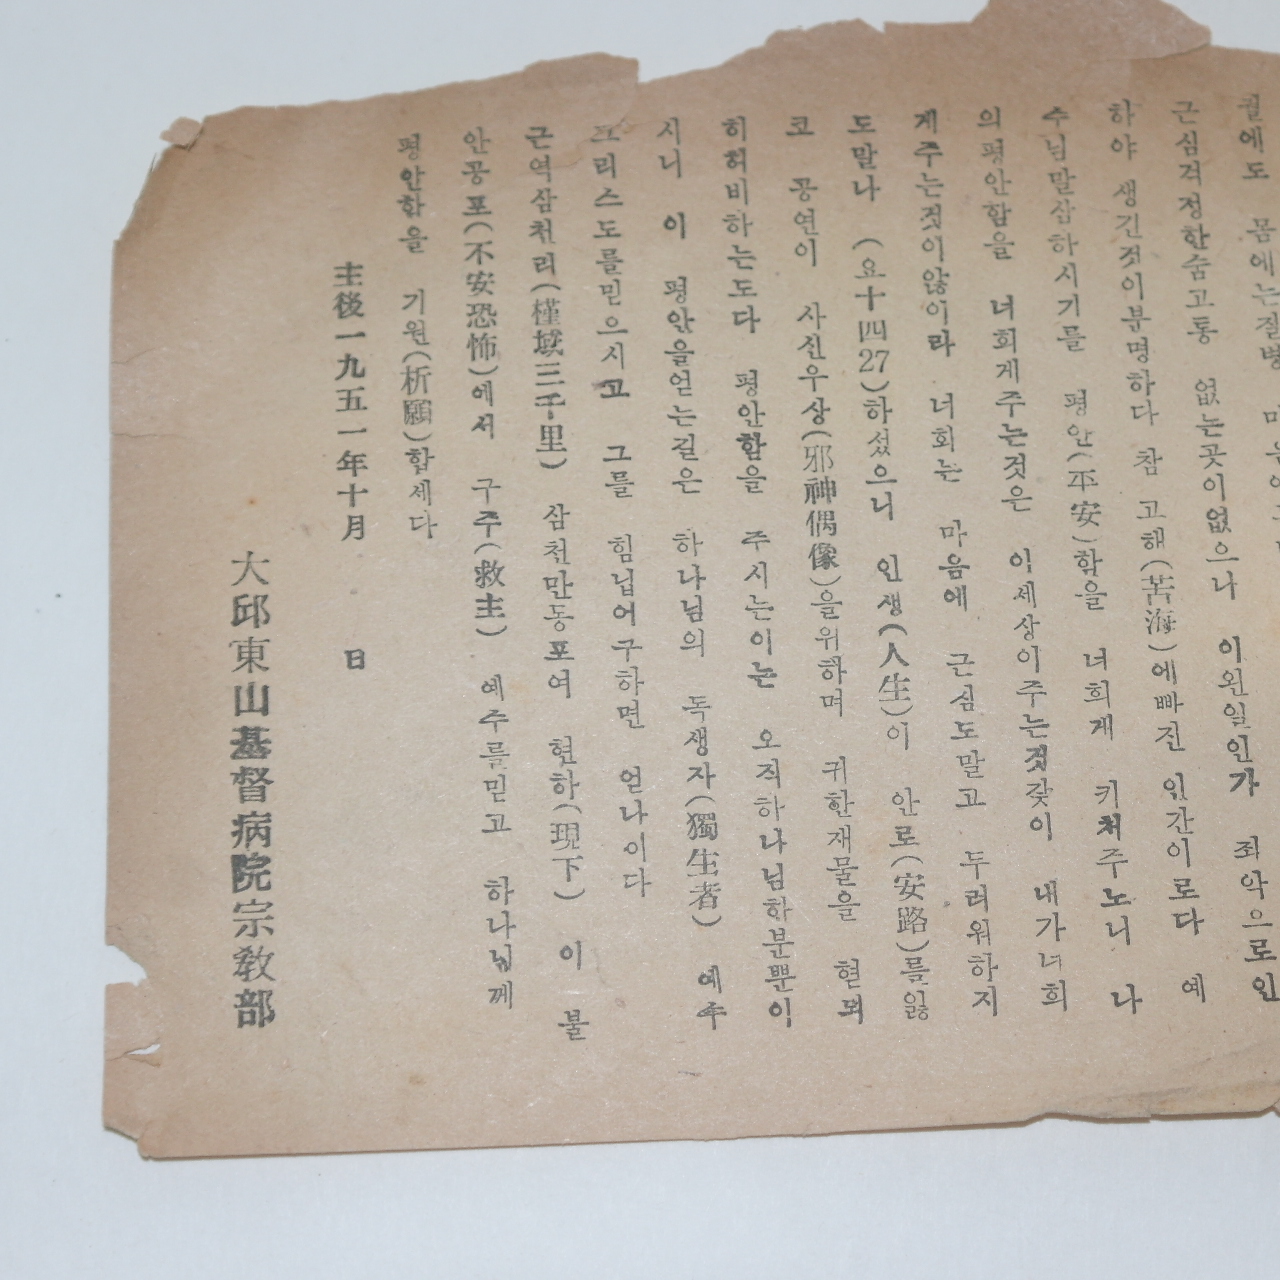 에도 몸에는질병 마음에
근심걱정한숨고통 없는곳이없으나 이왼일인가 죄악으로인
하야 생긴것이분명하다 참 고해(苦海)에빠진 인간이로다 예
수님말삼하시기를 평안(平安)함을 너희게 키처주노니 나
의평안함을 너희게주는것은 이세상이주는것갖이 내가너희
게주는것이않이라 너희는 마음에 근심도말고 두려워하지
도말나 (요十四27)하섰으니 인생(人生)이 안로(安路)를잃
코 공연이 사신우상(邪神偶像)을위하며 귀한재물을 헌되
히허비하는도다 평안함을 주시는이는 오직하나님한분뿐이
시니 이 평안을얻는길은 하나님의 독생자(獨生者) 예수
그리스도를믿으시고 그를 힘닙어구하면 얻나이다
근역삼천리(槿域三千里) 삼천만동포여 현하(現下) 이 불
안공포(不安恐怖)에서 구주(救主) 예수를믿고 하나님께
평안함을 기원(祈願)합세다
主後一九五一年十月 日
大邱東山基督病院宗敎部